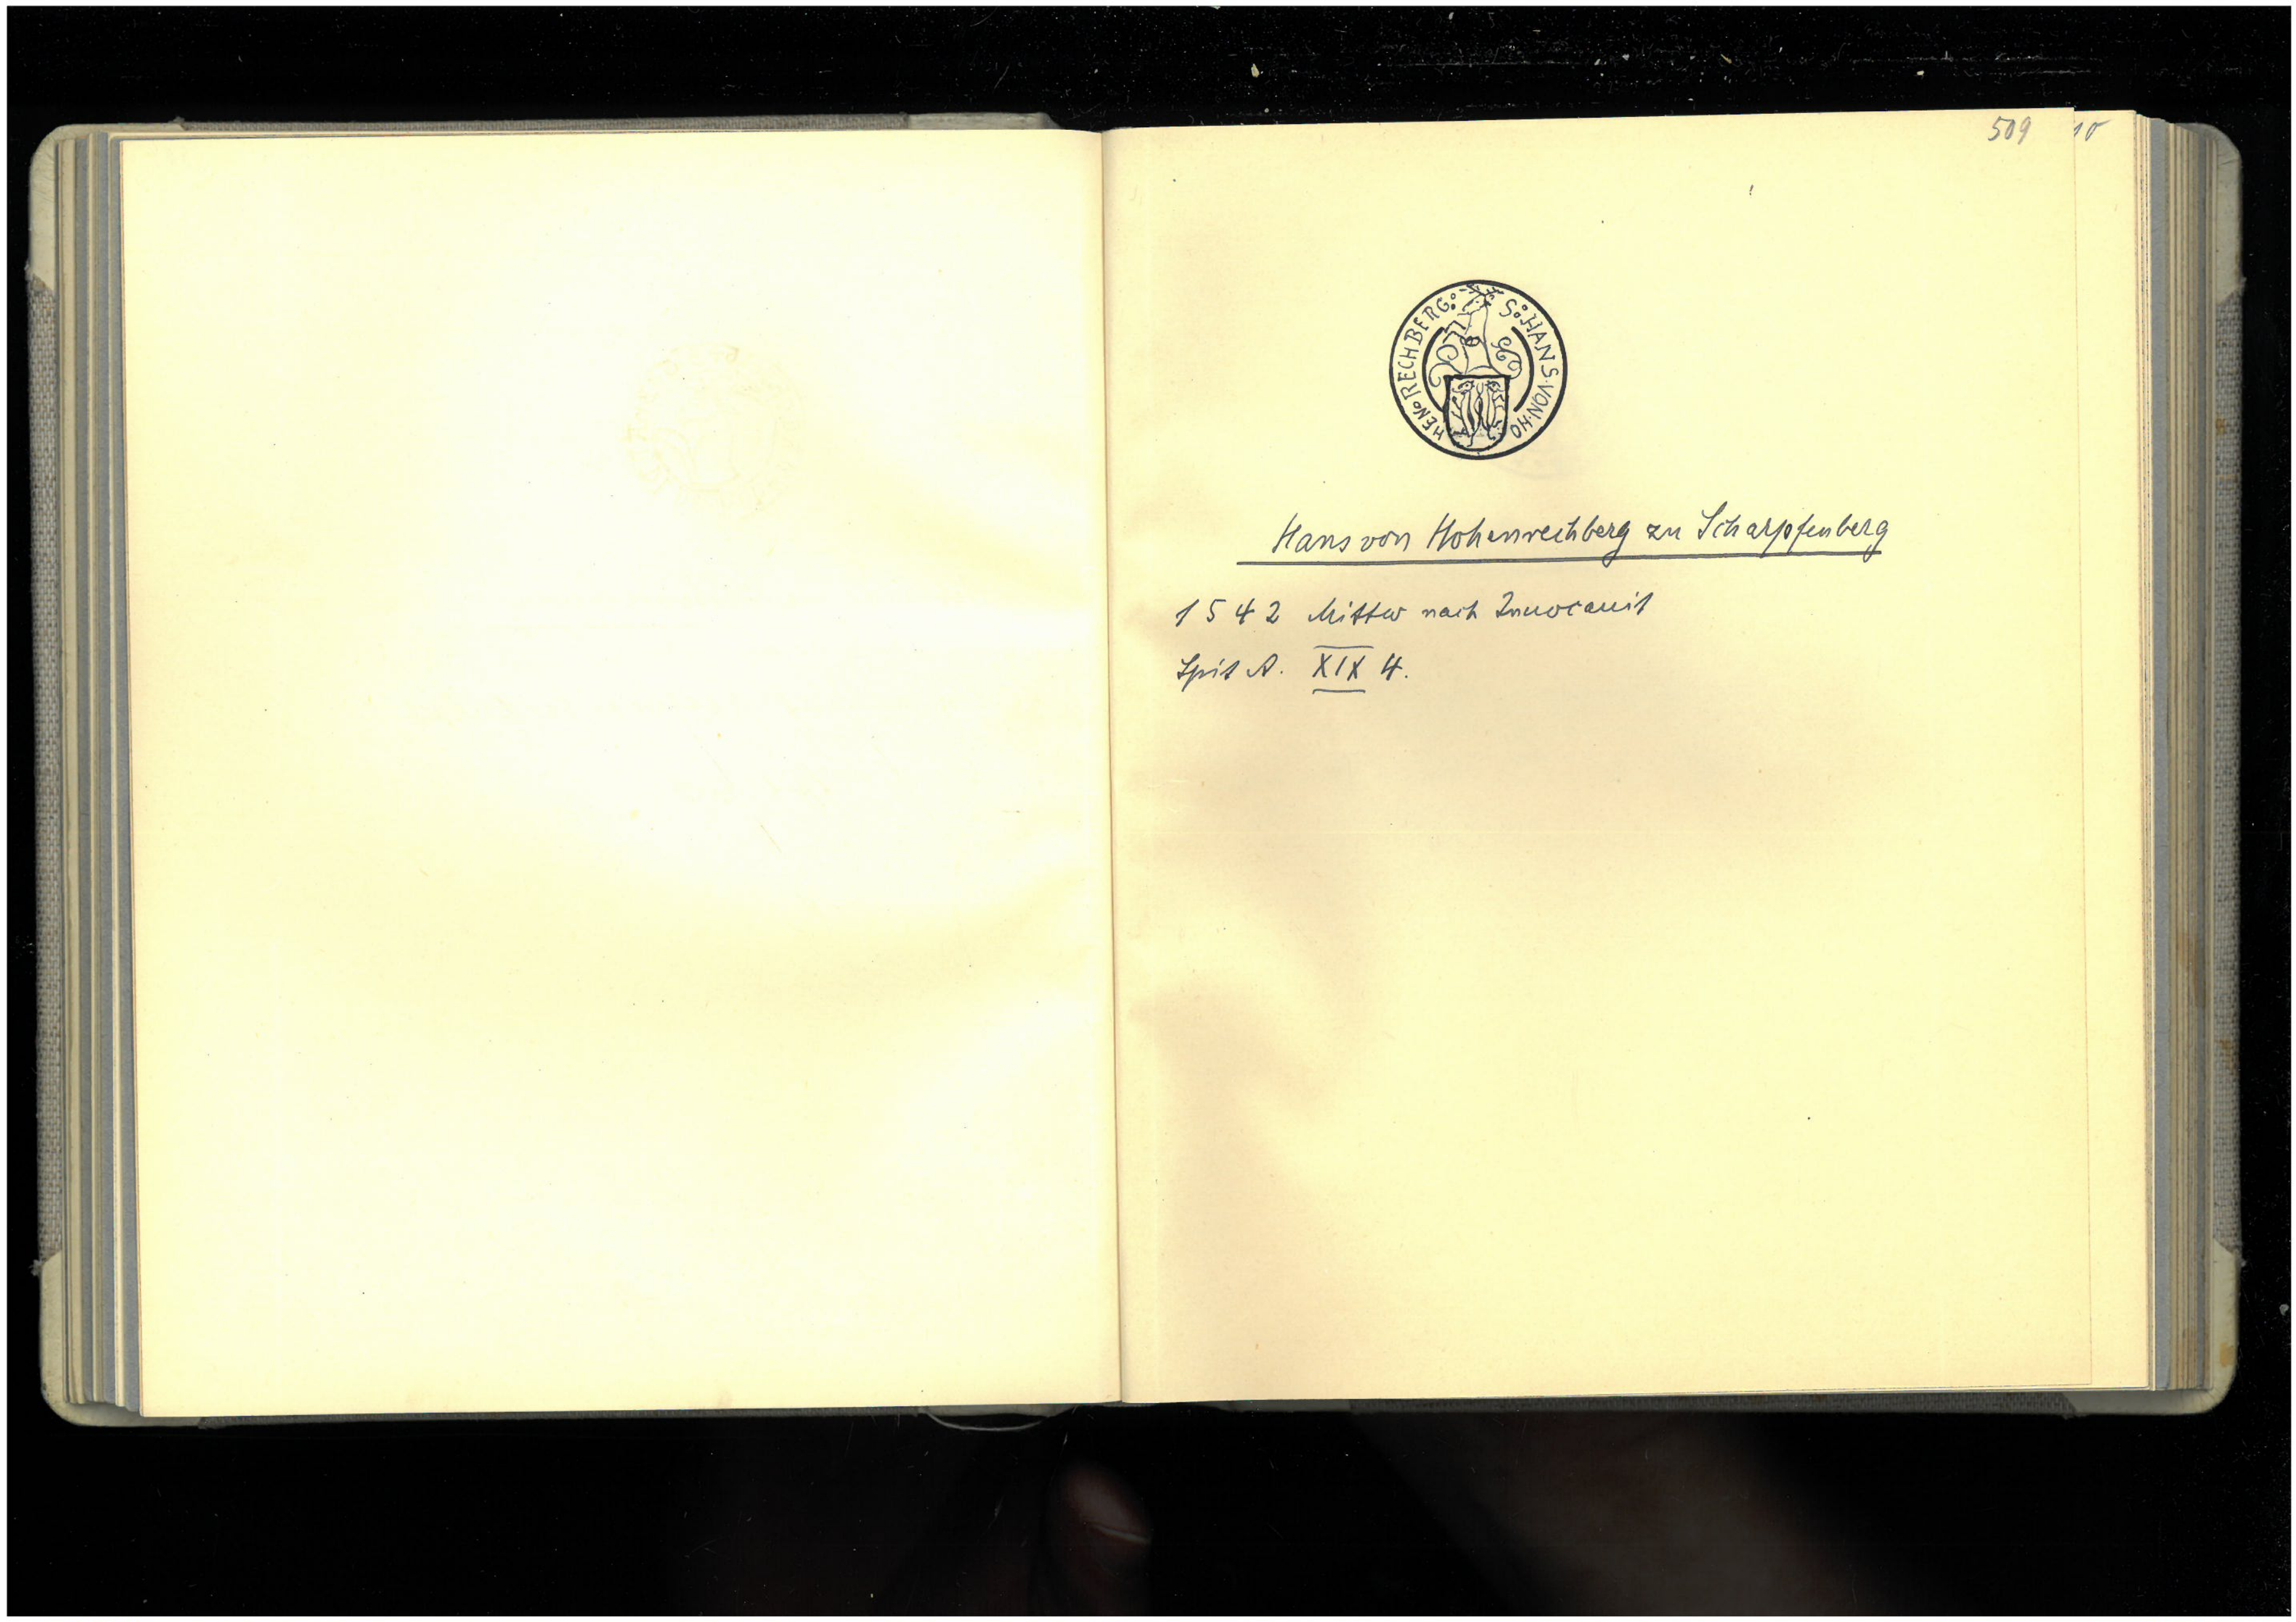 509
10
S: HANS·VON·HO
HEN° RECHBERG:
Hans von Hohenrechberg zu Scharpfenberg
1542 Mittw nach Invocauit
Spit A. XIX 4.